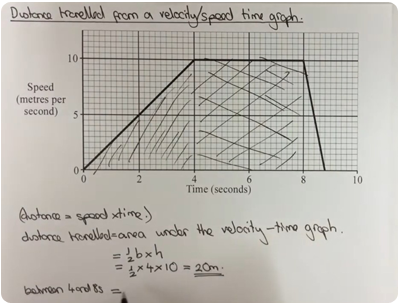 Distance travelled from a velocity/speed time graph.
10
Speed
(metres per
second)
5
0
0 2 4 6 8 10
Time (seconds)
(distance = speed x time.)
distance travelled = area under the velocity-time graph.
= ½ b x h
= ½ x 4 x 10 = 20m.
between 4 and 8s =